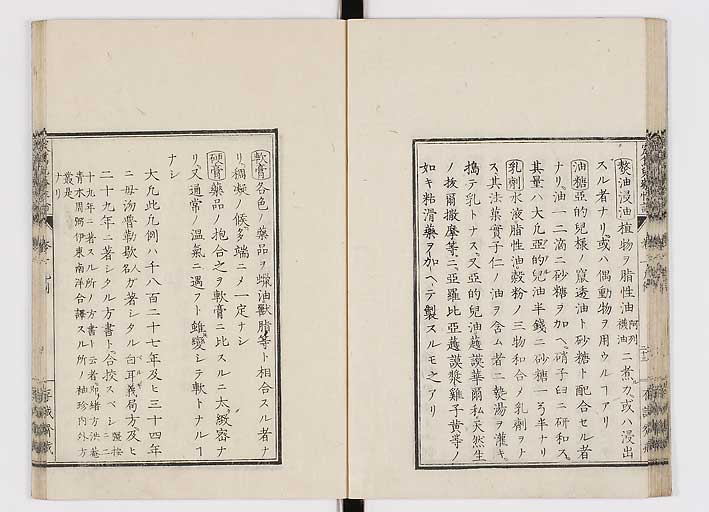 熬油浸油植物ヲ脂性油 阿列襪油 ニ煮カ、或ハ浸出
スル者ナリ、或ハ偶動物ヲ用ウルヿアリ
油糖亞的兒様ノ竄透油ト砂糖ト配合セル者
ナリ、油一二滴ニ砂糖ヲ加ヘ、硝子臼ニ研和ス、
其量ハ大凡亞的兒油半錢ニ砂糖一ヲ半ナリ
乳劑水液脂性油澱粉ノ三物和合ノ乳劑ヲナ
ス、其法菓實子仁ノ油ヲ含ム者ニ熱湯ヲ灌キ、
擣テ乳トナス、又亞的兒油越謨華爾私天然生
ノ拔爾撒摩等ニ、亞羅比亞越謨漿雞子黄等ノ
如キ粘滑藥ヲ加ヘテ製スルモ之アリ
軟膏各色ノ藥品ヲ蠟油獸脂等ト相合スル者ナ
リ、稠凝ノ候多端ニメ一定ナシ
硬膏藥品ノ抱合之ヲ軟膏ニ比スルニ太緻密ナ
リ、又通常ノ温氣ニ遇フト雖變シテ軟トナルヿ
ナシ
大凡此凡例ハ千八百二十七年及ヒ三十四年
ニ毋沕魯勒歇人名カ著シタル白耳義局方及ヒ
二十九年ニ著シタル方書ト合挍スベシ
十九年ニ著スル所ノ方書ト云者即緒方洪菴
青木周弼伊東南洋合譯スル所ノ袖珍内外方
叢是ナリ